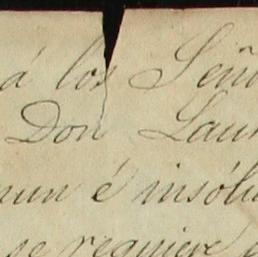 á los Seño
Don Laur
mun é insólu
se requiere